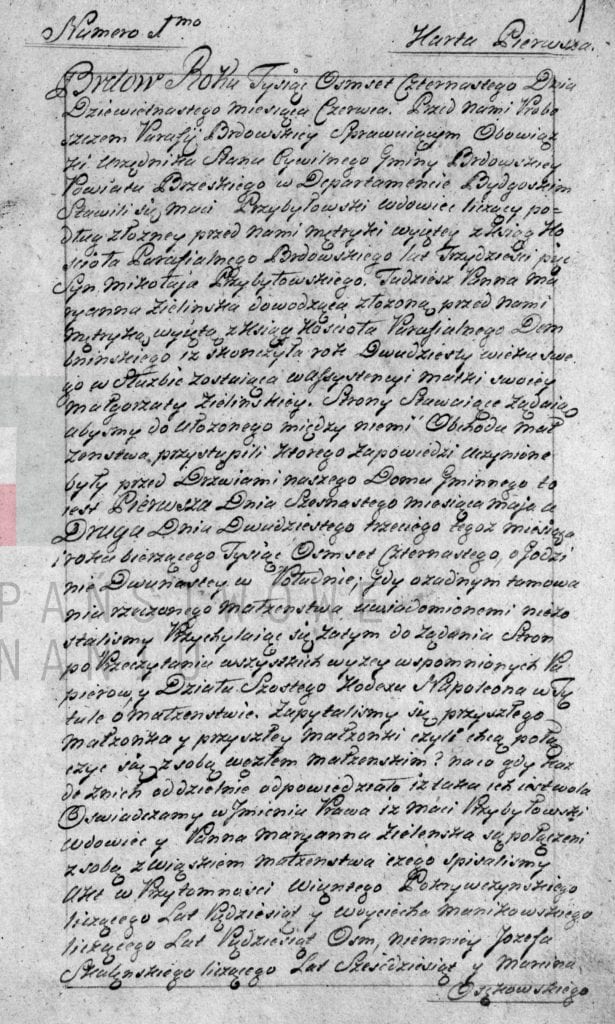 1
Numero 1mo
Karta Pierwsza.
Brdow Roku Tysiąc Osmset Czternastego Dnia
Dziewiętnastego miesiąca Czerwca. Przed nami Probo
szczem Parafij Brdowskiey Sprawuiącym Obowiąz
ki Urzędnika Stanu Cywilnego Gminy Brdowskiey
Powiatu Brzeskiego w Departamencie Bydgoskim
Stawili się Maci Przybyłowski wdowiec liczący po=
dług złożney przed nami metryki wyiętey z Ksiąg Ko
scioła Parafialnego Brdowskiego lat Trzydzieści pięć
Syn Mikołaja Przybyłowskiego. Tudziesz Panna Ma
ryanna Zielinska dowodząca złozoną przed nami
metryką wyiętą z Ksiąg Koscioła Parafialnego Dem
bninskiego iz skonczyła rok Dwudziesty wieku swe
go w Służbie zostaiąca w Assystencyi matki swoiey
Małgorzaty Zielinskiey. Strony Stawaiące żądaią
abysmy do ułozonego między niemi Obchodu mał
zenstwa przystąpili ktorego zapowiedzi uczynione
były przed Drzwiami naszego Domu Gminnego to
iest Pierwsza Dnia Szesnastego miesiąca Maja a
Druga Dnia Dwudziestego trzeciego tegoz miesiąca
i roku bierzącego Tysiąc Osmset Czternastego, o Godzi
nie Dwunastey w Południe; Gdy o zadnym tamowa
nia rzeczonego małzenstwa uwiadomionemi niezo
stalismy Przychylaiąc się zatym do żądania Stron
po Przeczytaniu wszystkich wyzey wspomnionych Pa
pierow, y Działu Szostego Kodexu Napoleona w Ty
tule o małzenstwie. Zapytalismy się przyszłego
małzonka y przyszłey małzonki czyli chcą połą
czyc się z sobą węzłem małzenskim? na co gdy Kaz
de z nich oddzielnie odpowiedziało iz taka ich iest wola
Oswiadczamy w Jmieniu Prawa iz Maci Przybyłowski
wdowiec y Panna Maryanna Zielenska są połączeni
z sobą związkiem małzenstwa czego spisalismy
Akt w Przytomnosci Wiąntego Pokrywczynskiego
liczącego Lat Pędziesiąt y Woyciecha Manikowskiego
liczącego Lat Pędziesiąt Osm, niemniey Jozefa
Skalynskiego liczącego Lat Sześćdziesiąt y Marcina
Oszkowskiego
PAŃSTWOWE